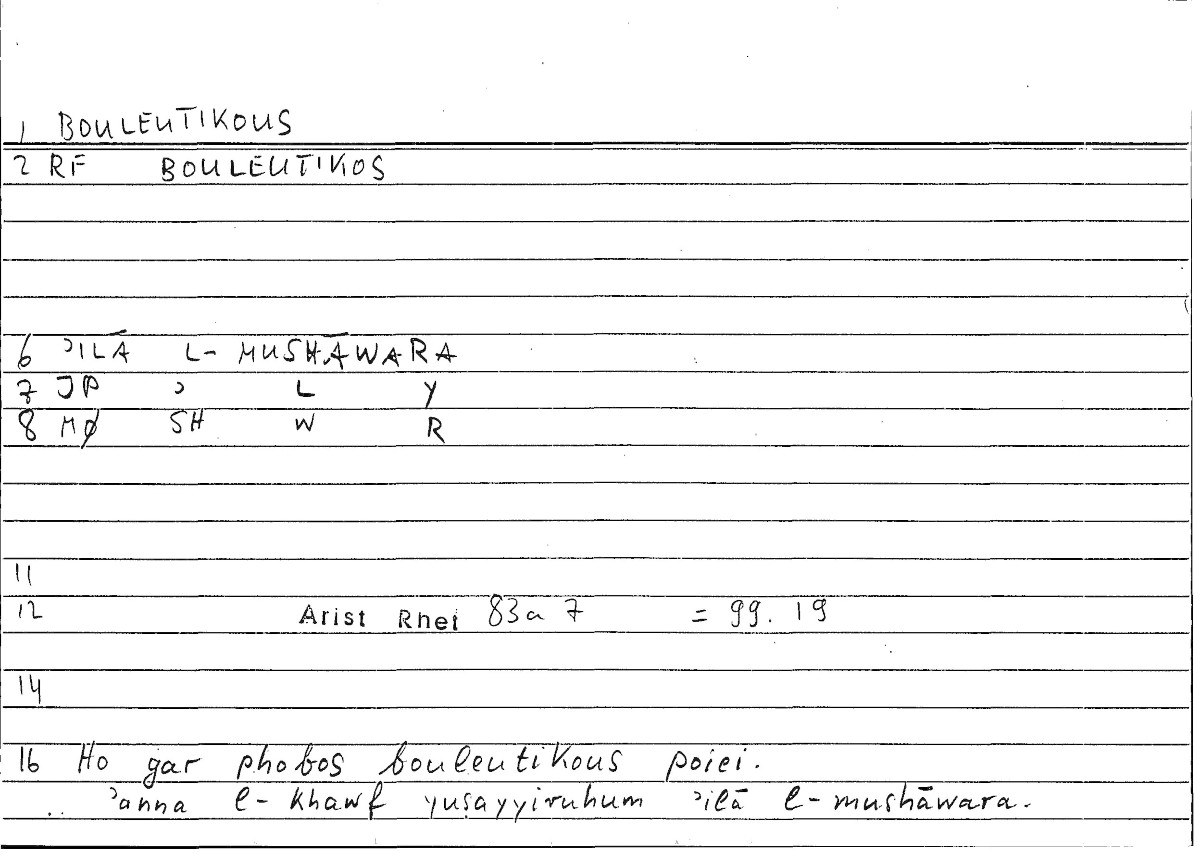 1 BOULEUTIKOUS
2 RF BOULEUTIKOS
6 ʾILĀ L- MUSHĀWARA
7 JP ʾ L Y
8 MØ SH W R
11
12 Arist Rhet 83a 7 = 99. 19
14
16 Ho gar phobos bouleutikous poiei.
.. ʾanna l- khawf yuṣayyiruhum ʾilā l- mushāwara.